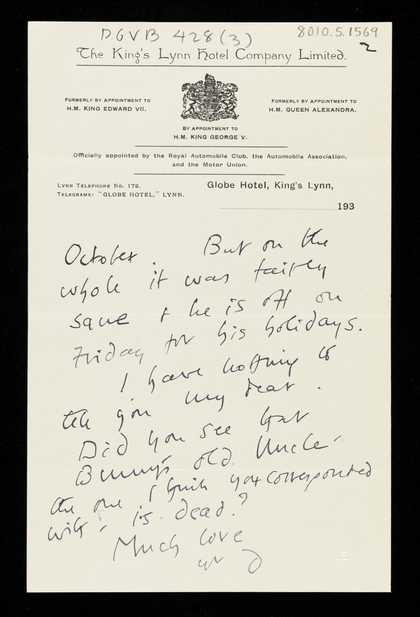 DGVB 428(3)
8010.5.1569
2
The King's Lynn Hotel Company Limited.
FORMERLY BY APPOINTMENT TO
H.M. KING EDWARD VII.
FORMERLY BY APPOINTMENT TO
H.M. QUEEN ALEXANDRA.
BY APPOINTMENT TO
H.M. KING GEORGE V.
Officially appointed by the Royal Automobile Club, the Automobile Association,
and the Motor Union.
LYNN TELEPHONE No. 176.
TELEGRAMS: "GLOBE HOTEL," LYNN.
Globe Hotel, King's Lynn,
193
October. But on the
whole it was fairly
sane + he is off on
Friday for his holidays.
I have nothing to
tell you my dear.
Did you see that
Bunny's old Uncle -
the one I think you corresponded
with - is dead?
Much love
yr D